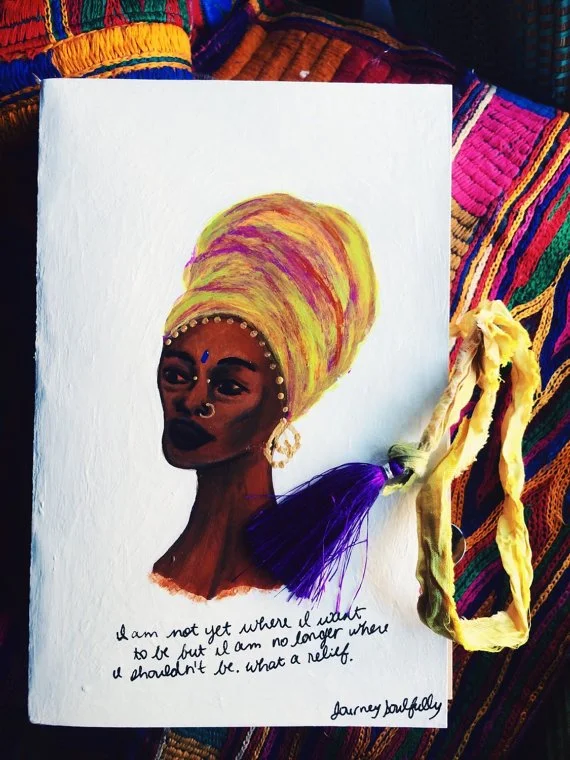 I am not yet where I want
to be but I am no longer where
I shouldn't be. what a relief.
Journey Soulfully